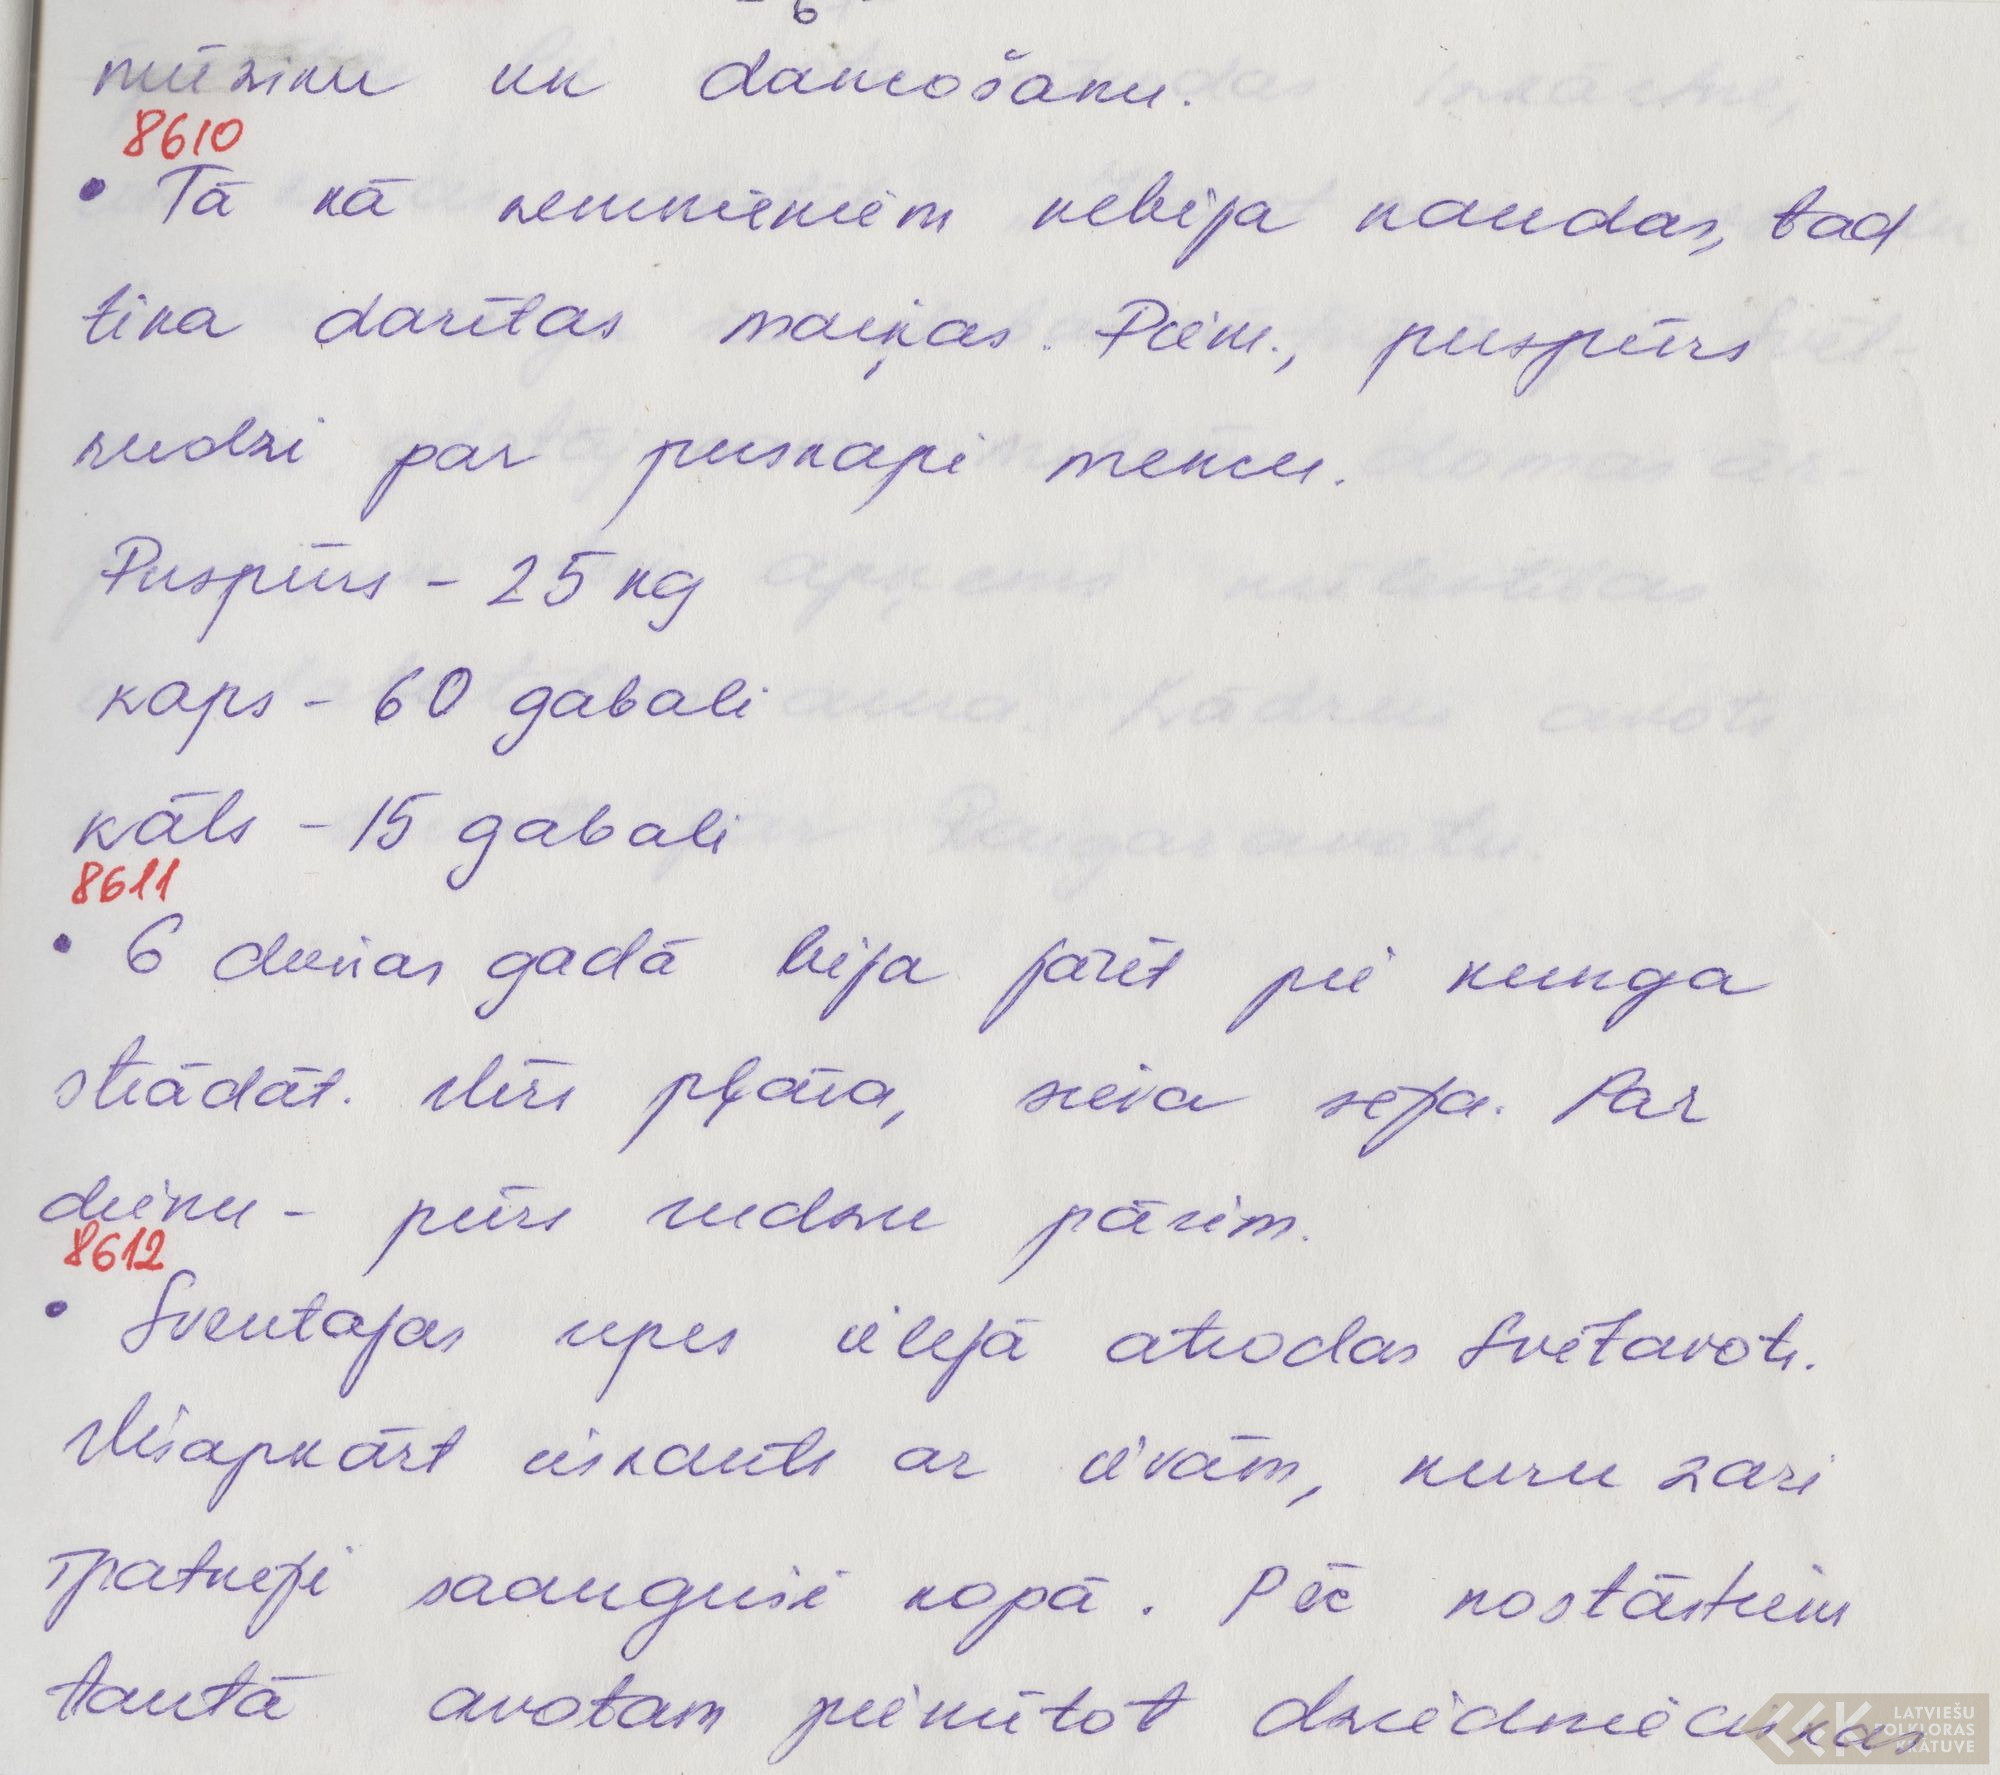 - 6 -
mūziku un dancošanu.
8610
• Tā kā zemniekiem nebija naudas, tad
tika darītas maiņas. Piem., puspūrs
rudzi par puskapi mencu.
Puspūrs - 25 kg
kaps - 60 gabali
kāls - 15 gabali
8611
• 6 dienas gadā bija jāiet pie kunga
strādāt. Vīrs pļāva, sieva sēja. Par
dienu - pūrs rudzu pārim.
8612
• Sventājas upes ielejā atrodas Svētavots.
Visapkārt ieskauts ar ievām, kuru zari
īpatnēji saauguši kopā. Pēc nostāstiem
tautā avotam piemītot dziednieciskas
LATVIEŠU
FOLKLORAS
KRĀTUVE